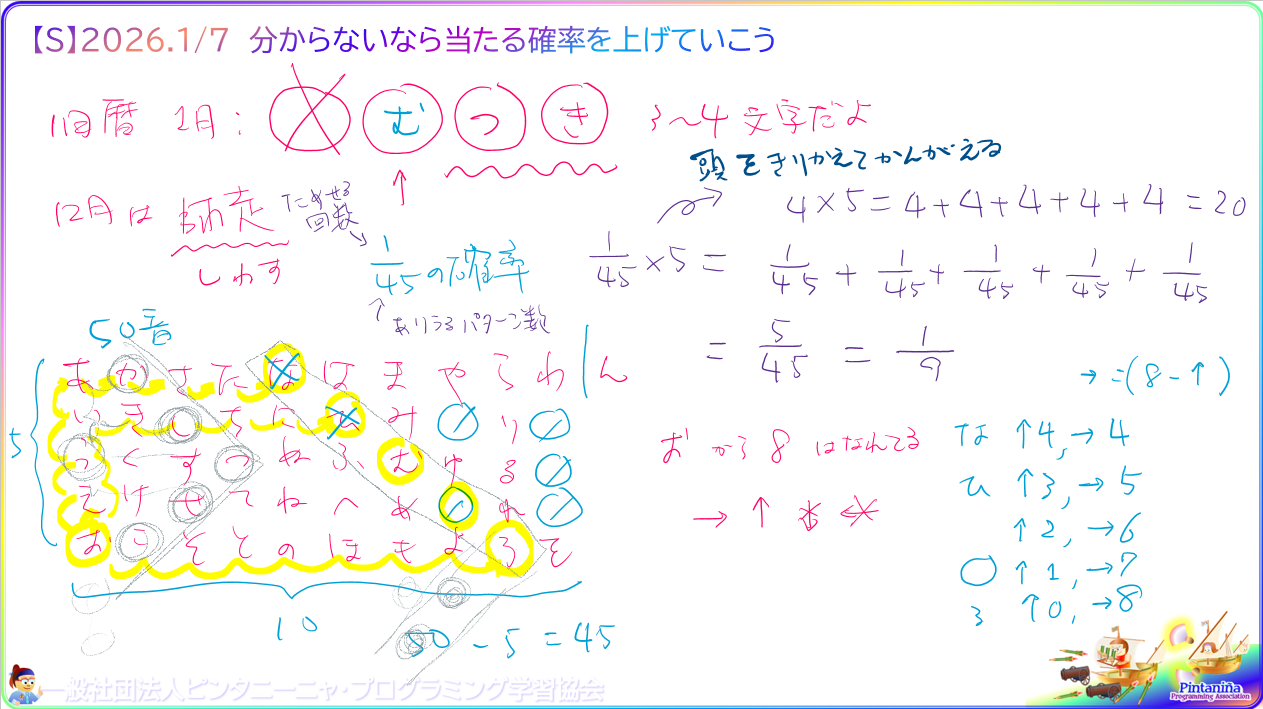 【S】2026.1/7 分からないなら当たる確率を上げていこう
旧暦 1月: む つ き 3〜4文字だよ
頭をきりかえてかんがえる
12月は 師走
しわす
ためせる
回数
1/45の確率
ありうるパターン数
4×5=4+4+4+4+4=20
1/45×5= 1/45+1/45+1/45+1/45+1/45
=5/45=1/9
50音
あかさたなはまやらわ|ん
いきしちにひみ り
うくすつぬふむゆる
えけせてねへめ れ
おこそとのほもよろを
5
10
50-5=45
おから8はなれてる
→ ↑
→=(8-↑)
な ↑4,→4
ひ ↑3,→5
↑2,→6
○ ↑1,→7
ろ ↑0,→8
一般社団法人ピンタニーニャ・プログラミング学習協会
Pintanina
Programming Association